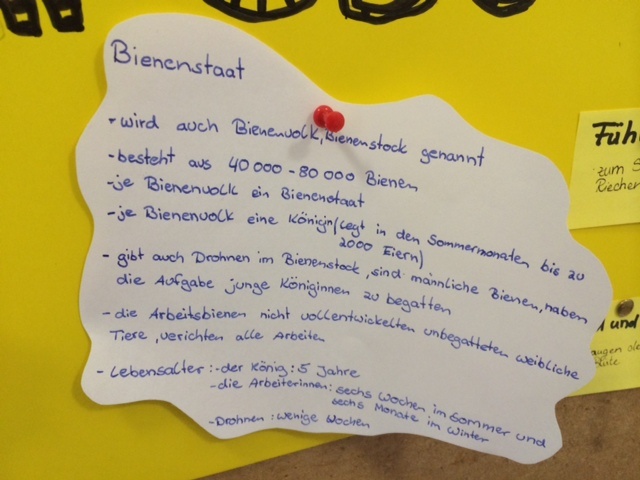 Bienenstaat
- wird auch Bienenvolk, Bienenstock genannt
- besteht aus 40 000 - 80 000 Bienen
- je Bienenvolk ein Bienenstaat
- je Bienenvolk eine Königin (legt in den Sommermonaten bis zu
2000 Eiern)
- gibt auch Drohnen im Bienenstock, sind männliche Bienen, haben
die Aufgabe junge Königinnen zu begatten
- die Arbeitsbienen nicht vollentwickelten unbegatteten weibliche
Tiere, verichten alle Arbeiten
- Lebensalter: - der König: 5 Jahre
- die Arbeiterinnen: sechs Wochen im Sommer und
sechs Monate im Winter
- Drohnen: wenige Wochen
Füh
zum S
Riecher
und